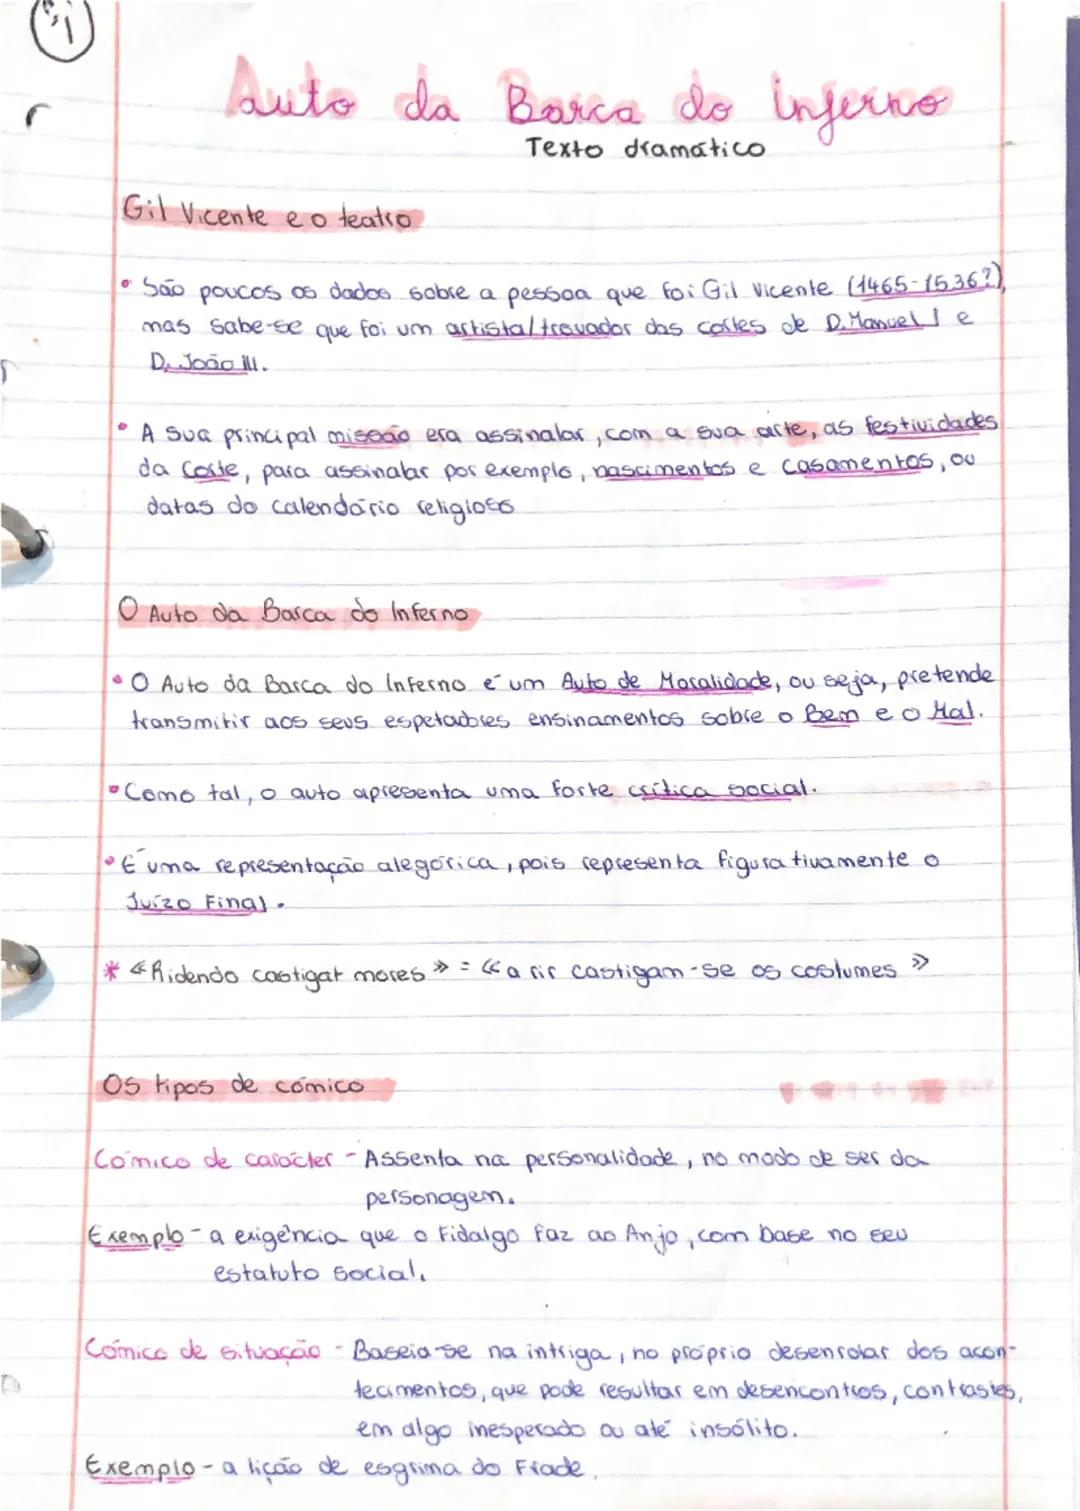 1
Auto da Barca do Inferno
Texto dramático
Gil Vicente e o teatro
• São poucos os dados sobre a pessoa que foi Gil Vicente (1465-1536?),
mas sabe-se que foi um artista/trovador das cortes de D. Manuel I e
D. João III.
• A sua principal missão era assinalar, com a sua arte, as festividades
da Corte, para assinalar por exemplo, nascimentos e casamentos, ou
datas do calendário religioso
O Auto da Barca do Inferno
• O Auto da Barca do Inferno é um Auto de Moralidade, ou seja, pretende
transmitir aos seus espetadores ensinamentos sobre o Bem e o Mal.
• Como tal, o auto apresenta uma forte crítica social.
• É uma representação alegórica, pois representa figurativamente o
Juízo Final.
* «Ridendo castigat mores» = «a rir castigam-se os costumes»
Os tipos de cómico
Cómico de carácter - Assenta na personalidade, no modo de ser da
personagem.
Exemplo - a exigência que o Fidalgo faz ao Anjo, com base no seu
estatuto social.
Cómico de situação - Baseia-se na intriga, no próprio desenrolar dos acon-
tecimentos, que pode resultar em desencontros, contrastes,
em algo inesperado ou até insólito.
Exemplo - a lição de esgrima do Frade.